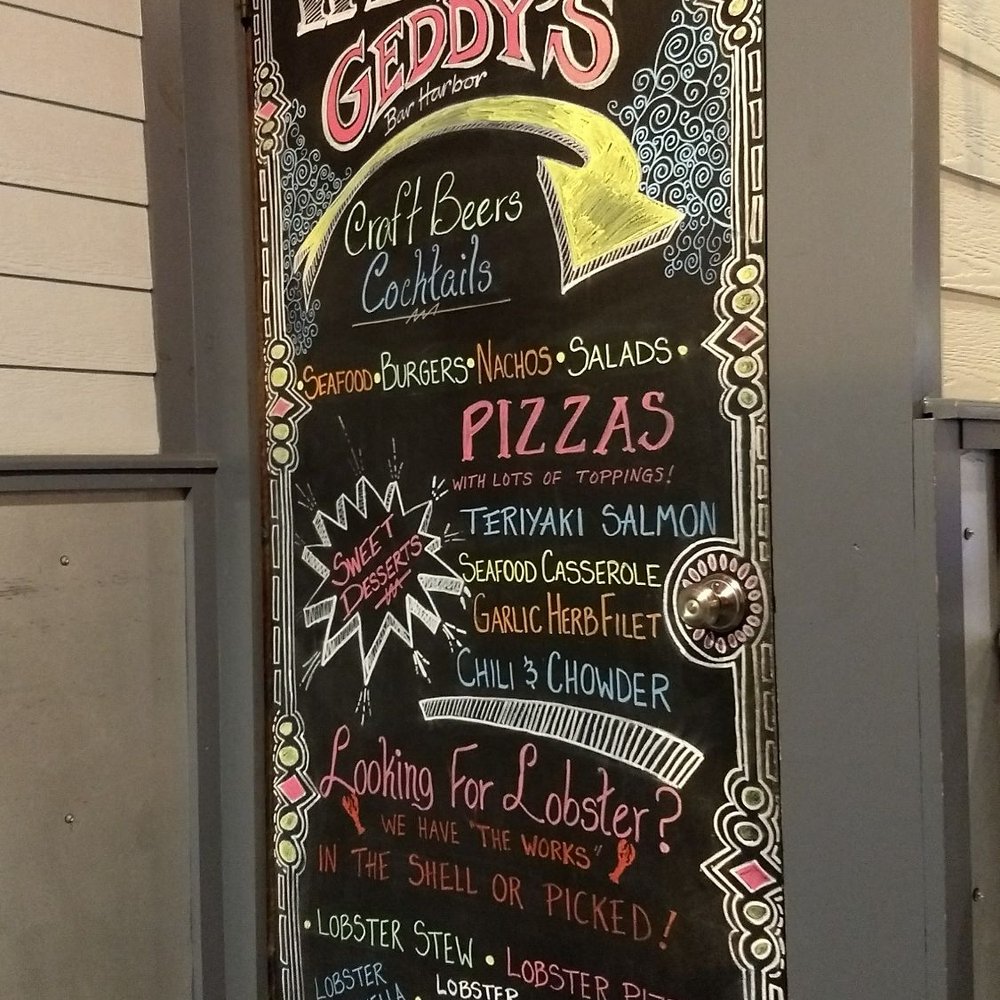 GEDDY'S
Bar Harbor
Craft Beers
Cocktails
•SEAFOOD•BURGERS•NACHOS•SALADS•
PIZZAS
WITH LOTS OF TOPPINGS!
SWEET
DESSERTS
TERIYAKI SALMON
SEAFOOD CASSEROLE
GARLIC HERB FILET
CHILI & CHOWDER
Looking For Lobster?
WE HAVE "THE WORKS"
IN THE SHELL OR PICKED!
• LOBSTER STEW • LOBSTER
LOBSTER
LOBSTER